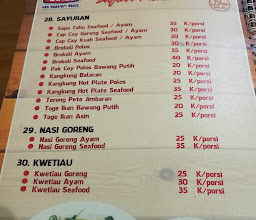 28. SAYURAN
Sapo Tahu Seafood / Ayam 35 K/porsi
Cap Cay Goreng Seafood / Ayam 30 K/porsi
Cap Cay Kuah Seafood / Ayam 30 K/porsi
Brokoli Polos 30 K/porsi
Brokoli Ayam 35 K/porsi
Brokoli Seafood 40 K/porsi
Pak Coy Polos Bawang Putih 20 K/porsi
Kangkung Balacan 20 K/porsi
Kangkung Hot Plate Polos 25 K/porsi
Kangkung Hot Plate Seafood 35 K/porsi
Terong Pete Jimbaran 25 K/porsi
Toge Ikan Bawang Putih 20 K/porsi
Toge Ikan Asin 25 K/porsi
29. NASI GORENG
Nasi Goreng Ayam 25 K/porsi
Nasi Goreng Seafood 35 K/porsi
30. KWETIAU
Kwetiau Goreng 25 K/porsi
Kwetiau Ayam 30 K/porsi
Kwetiau Seafood 35 K/porsi